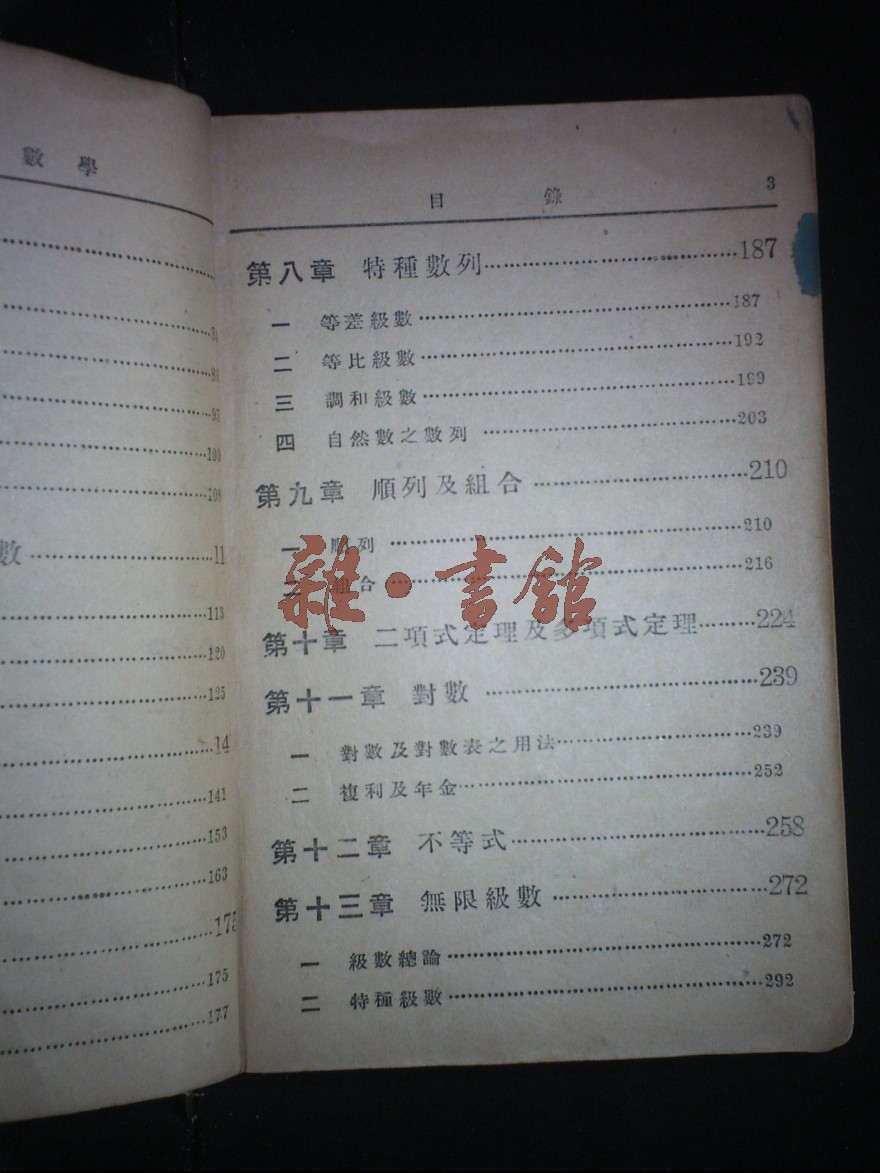 數學
84
88
95
100
108
數…………11
113
120
125
14
141
153
163
175
175
177
目 錄 3
第八章 特種數列…………187
一 等差級數…………187
二 等比級數…………192
三 調和級數…………199
四 自然數之數列…………203
第九章 順列及組合…………210
一 順列…………210
二 組合…………216
雜·書館
第十章 二項式定理及多項式定理…………224
第十一章 對數…………239
一 對數及對數表之用法…………239
二 複利及年金…………252
第十二章 不等式…………258
第十三章 無限級數…………272
一 級數總論…………272
二 特種級數…………292